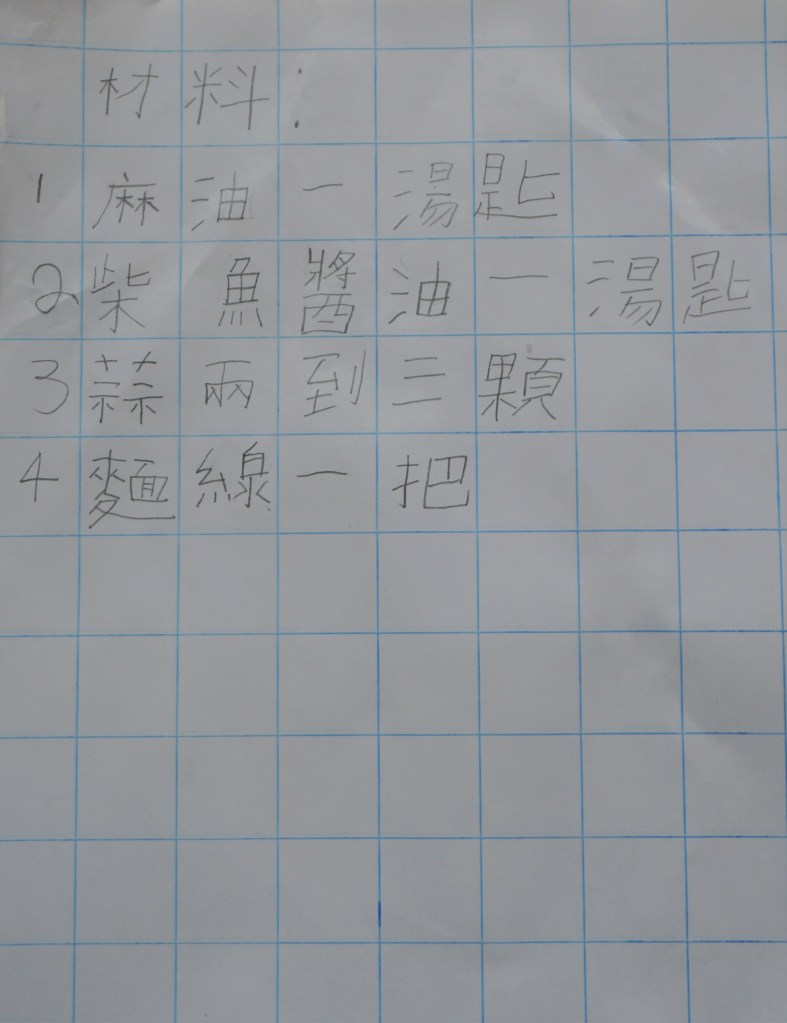 材料:
1 麻油一湯匙
2 柴魚醬油一湯匙
3 蒜兩到三顆
4 麵線一把